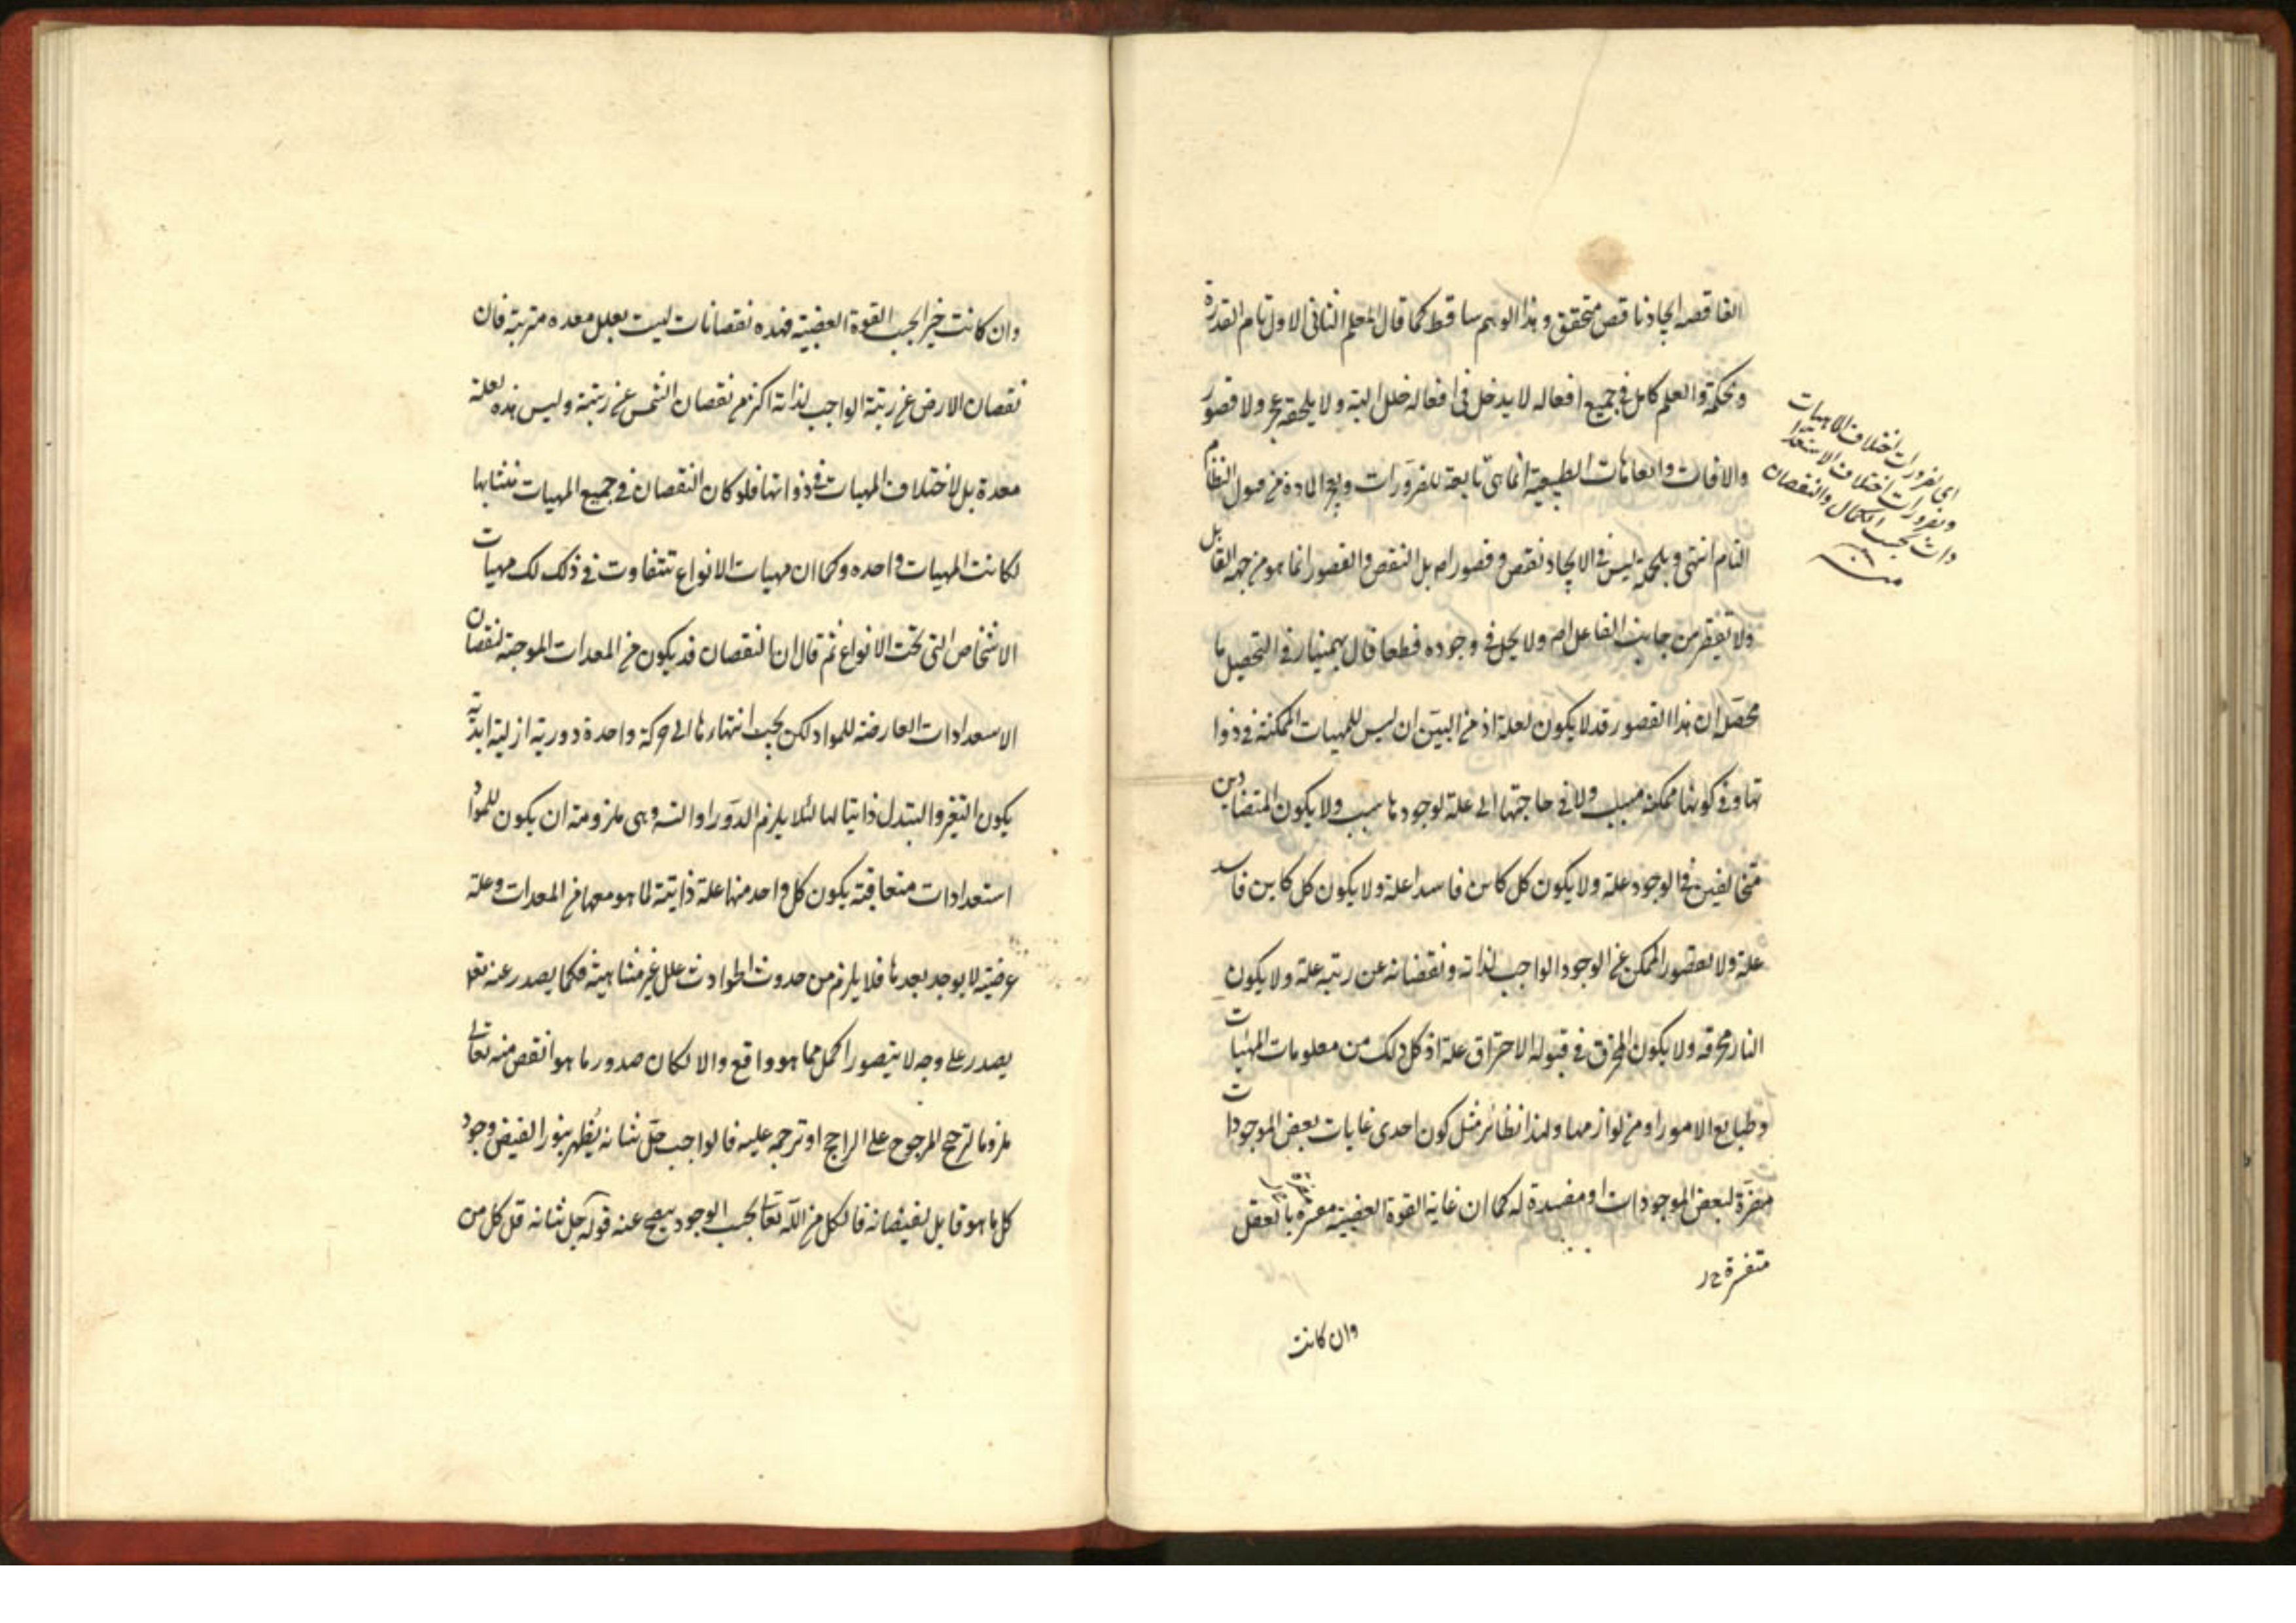 الغاقصه ايجاد ناقص متحقق وهذا الوهم ساقط كما قال المعلم الثانى الاول تام القدرة
والحكمة والعلم كامل فى جميع افعاله لا يدخل فى افعاله خلل البتة ولا يلحقه عجز ولا قصور
والافات والعاهات الطبيعية انما هى تابعة للضرورات ولعجز المادة من قبول النظام
التام انتهى وبالجملة ليس فى الايجاد نقص وقصور اصلا بل النقص والقصور انما هو من جهة القابل
ولا تفيظن من جانب الفاعل اصلا ولا يحل فى وجوده قطعا قال بهمنيار فى التحصيل ما
محصله ان هذا القصور قد لا يكون لعلة اذ من البين ان ليس للمهيات الممكنة فى ذوا
تها وفى كونها ممكنة سبب ولا فى حاجتها الى علة لوجودها سبب ولا يكون المتضادين
متخالفين فى الوجود علة ولا يكون كل كاين فاسدا علة ولا يكون كل كاين فاسد
علة ولا لقصور الممكن عن الوجود الواجب لذاته ونقصانه عن رتبته علة ولا يكون
النار محرقه ولا يكون المحرق فى قبوله الاحتراق علة اذ كل ذلك من معلومات المهيات
وطبايع الامور او من لوازمها ولهذا نظائر مثل كون احدى غايات بعض الموجودات
مضرة لبعض الموجودات او مفسدة له كما ان غاية القوة الغضبية مضرة بالعقل
وان كانت
اى لضرورات اختلاف الماهيات
وضرورات اختلاف الاستعدا
دات بحسب الكمال والنقصان
منه
وان كانت خيرا بحسب القوة الغضبية فهذه نقصانات ليست بعلل معده مترتبة فان
نقصان الارض عن رتبة الواجب لذاته اكثر من نقصان الشمس عن رتبته وليس هذه لعلة
معدة بل لاختلاف المهيات فى ذواتها فلو كان النقصان فى جميع المهيات متشابها
لكانت المهيات واحده وكما ان مهيات الانواع تتفاوت فى ذلك كك مهيات
الاشخاص التى تحت الانواع ثم قال ان النقصان قد يكون من المعدات الموجبة لنقصان
الاستعدادات العارضة للمواد لكن يجب انتهاءها الى حركة واحدة دورية ازلية ابدية
يكون التغير والتبدل ذاتيا لها لئلا يلزم الدور او التسـ وهى ملزومة ان يكون للمواد
استعدادات متعاقبة يكون كل واحد منها علة ذاتية لما هو معها من المعدات وعلة
عرضية لا يوجد بعدها فلا يلزم من حدوث الحوادث علل غير متناهية فكما يصدر عنه تعا
يصدر على وجه لا يتصور اكمل مما هو واقع والا لكان صدور ما هو انقص منه تعالى
ملزوما لترجح المرجوح على الراجح او ترجحه عليه فالواجب جل شانه يظهر بنور الفيض وجود
كل ما هو قابل لفيضانه فالكل من الله تعالى بحسب الوجود يفصح عنه قوله جل شانه قل كل من